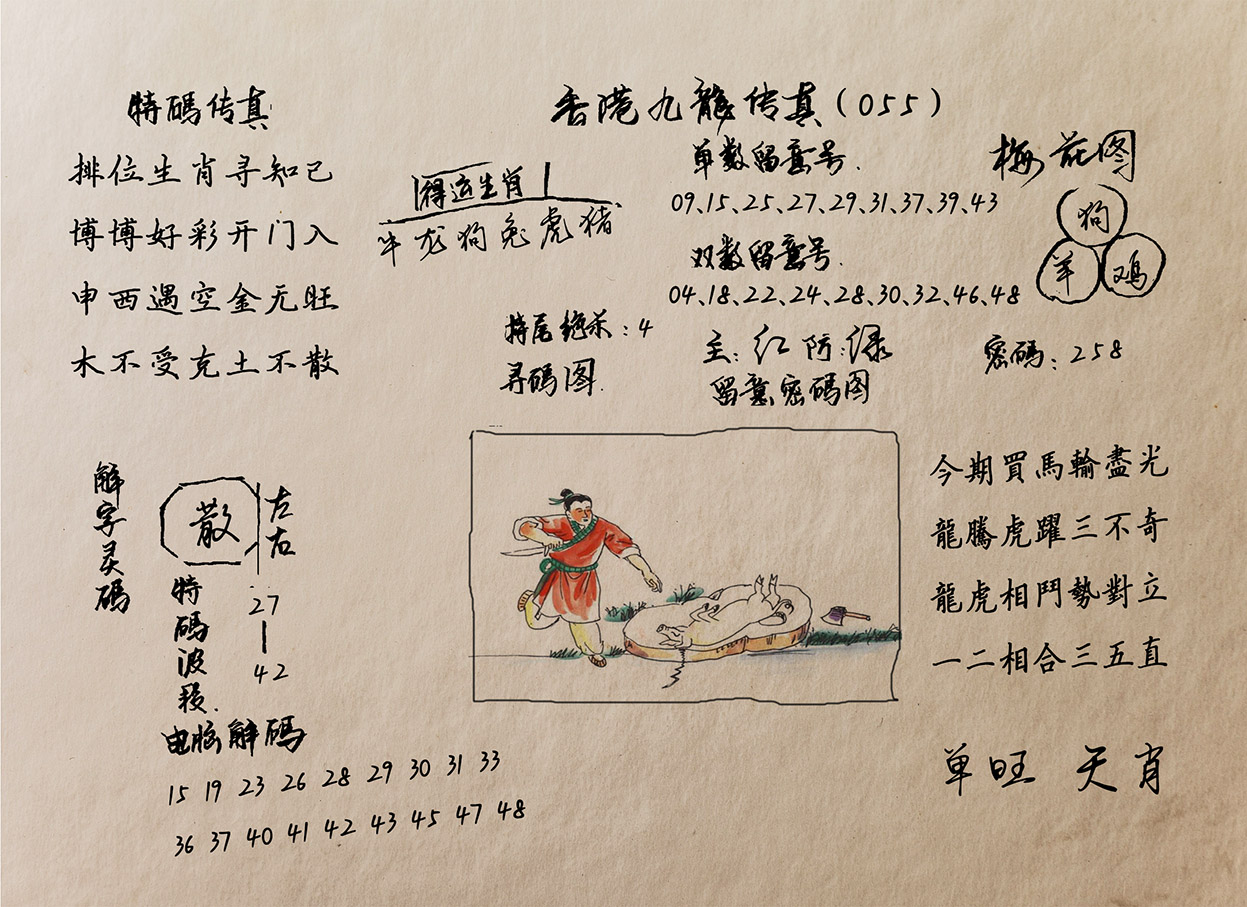 特碼传真
排位生肖寻知己
博博好彩开门入
申西遇空金无旺
木不受克土不散
得运生肖
牛龙狗兔虎猪
香港九龍传真(055)
单数留意号.
09、15、25、27、29、31、37、39、43
双数留意号.
04、18、22、24、28、30、32、46、48
梅花图
狗
羊 鸡
特尾绝杀:4
寻码图.
主:红 防:绿
留意密码图
密码:258
解字灵码
散
左右
特码波段.
27
|
42
电脑解码
15 19 23 26 28 29 30 31 33
36 37 40 41 42 43 45 47 48
今期買馬輪盡光
龍騰虎躍三不奇
龍虎相鬥勢對立
一二相合三五直
单旺 天肖